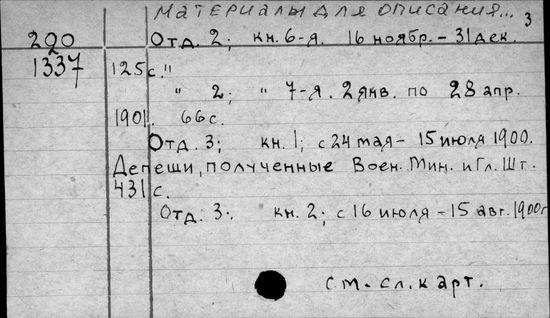 Материалы для описания... 3
290 Отд. 2; кн. 6-я. 16 ноябр. - 31 дек.
1337 125 с."
" 2; " 7-я. 2 янв. по 28 апр.
1901. 66 с.
Отд. 3; кн. 1; с 24 мая - 15 июля 1900.
Депеши, полученные Воен. Мин. и Гл. Шт.
431 с.
Отд. 3. кн. 2; с 16 июля - 15 авг. 1900г
см. сл. карт.